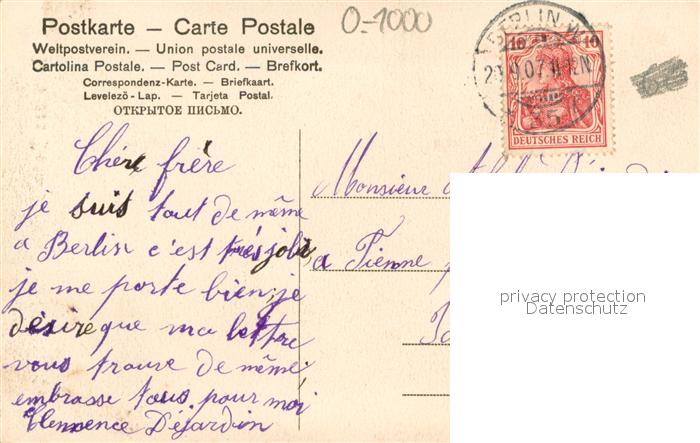 Postkarte — Carte Postale
Weltpostverein. — Union postale universelle.
Cartolina Postale. — Post Card. — Brefkort.
Correspondenz-Karte. — Briefkaart.
Levelező-Lap. — Tarjeta Postal.
ОТКРЫТОЕ ПИСЬМО.
0-1000
BERLIN W.
10 10
9.07.
DEUTSCHES REICH
Chère frère
je suis tout de même
a Berlin c'est très joli
je me porte bien, je
désire que ma lettre
vous trouve de même
embrasse tous pour moi
Clemence Déjardin
Monsieur
a Tienne
privacy protection
Datenschutz